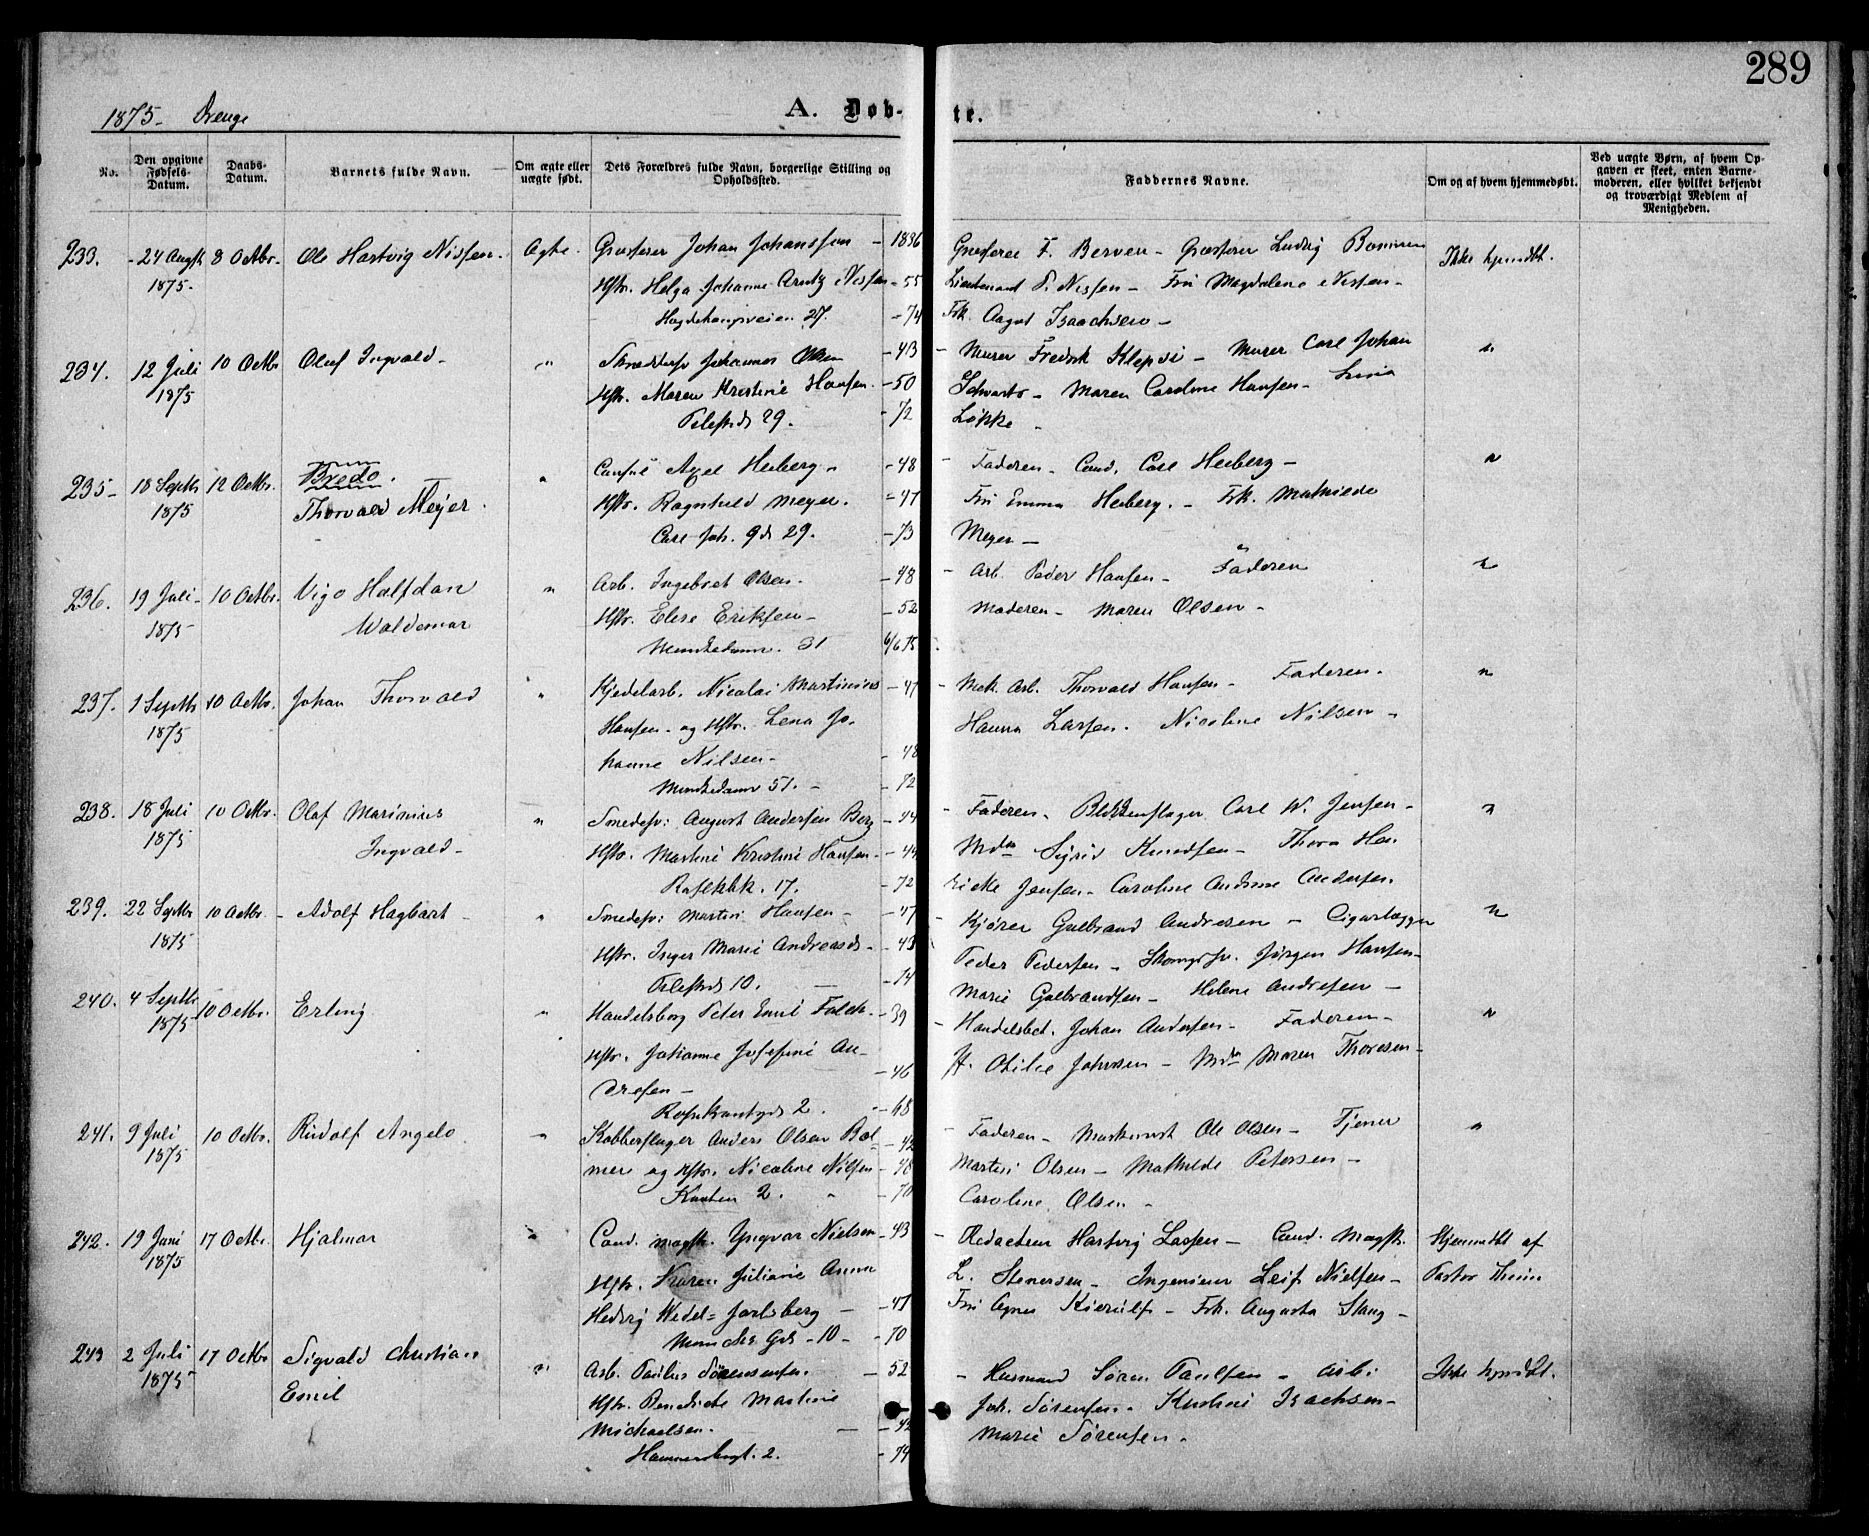 289
1875. Drenge
A. Døbte.
No.
Den opgivne Fødsels-Datum.
Daabs-Datum.
Barnets fulde Navn.
Om ægte eller uægte født.
Dets Forældres fulde Navn, borgerlige Stilling og Opholdssted.
Faddernes Navne.
Om og af hvem hjemmedøbt.
Ved uægte Børn, af hvem Opgaven er skeet, enten Barnemoderen, eller hvilket bekjendt og troværdigt Medlem af Menigheden.
233. 24 Augst 8 Octbr. Ole Hartvig Nissen. Ægte. Grosserer Johan Johanssen - 1836 Grosserer F. Berven - Grosserer Ludvig
1875. Hstr. Helga Johanne Arntz Nissen - 55 Lieutenant P. Nissen - Fru Magdalene Nissen -
Hægdehaugsveien 27. - 74 Frk. Aagot Isaachsen -
Ikke hjmdbt.
234. 12 Juli 10 Octbr Oluf Ingvald - " Johannes Olsen - 43 - Murer Fredrik - Murer Carl Johan "
1875 Hstr. Maren Kristine Hansen. - 50 Schwartz - Maren Caroline Hansen -
Pilestrd. 29. - 72 Løkke -
235 - 18 Septbr 12 Octbr. Bredo. " Axel Heiberg - - 48 - Faderen - Cand. Carl Heiberg - "
1875 Thorvald Meyer. Hstr. Ragnhild Meyer. - 47 Fru Emma Heiberg. - Frk. Mathilde
Carl Joh. Gd. 29. - 73 Meyer -
236. 19 Juli - 10 Octbr. Vigo Halfdan " Arb. Ingebret Olsen. - 48 - Arb. Peder Hansen - Faderen "
1875 Waldemar Hstr. Elise Eriksen - - 52 Moderen - Maren Olsen -
Munkedamv. 31 6/6 75
237. 1 Septbr 10 Octbr. Johan Thorvald " Kjedelarb. Nicolai Martinius - 47 - Mek. Arb. Thorvald Hansen - Faderen. "
1875 Hansen - og Hstr. Lena Jo- Hanna Larsen. Nicoline Nilsen -
hanne Nilsen - - 48
Munkedamv 51. - - 72
238. 18 Juli 10 Octbr. Olaf Marinius " Smedesv: August Andersen Berg - 44 - Faderen. Blikkenslager Carl W. Jensen - "
1875 Ingvald - Hstr. Martine Kristine Hansen - - 44 Mdm Sigrid Knudsen - Thora Hen-
17. - 72 ricke Jensen - Caroline Andrine Andersen.
239. 22 Septbr 10 Octbr. - Adolf Hagbart - " Smedesv: Martin Hansen - - 47 - Kjører Gulbrand Andresen - Cigarlægger "
1875 Hstr. Inger Marie Andreasd. - 43 Peder Pedersen - Jørgen Hansen -
Pilestrd. 10. - 74 Marie Gulbrandsen - Helene Andresen -
240. 4 Septbr 10 Octbr. Erling " Handelsborg Peter Emil Falck. - 39 - Handelsbet. Johan Andersen - Faderen - "
1875 Hstr. Johanne Josefine An- Otilie Johnsen - Mdm Maren Thoresen -
dresen - - 46
Rosenkrantzgd. 2. - 68
241. 9 Juli 10 Octbr. Rudolf Angelo " Kobberslager Anders Olsen Bol- - 42 - Faderen - Maskinist Ole Olsen - Tjener "
1875 mere og Hstr. Nicoline Nilsen - 48 Martin Olsen - Mathilde Petersen -
2. - 70 Caroline Olsen -
242. 19 Juni 17 Octbr. Hjalmar " Cand. magst. Yngvar Nielsen - 43 - Redacteur Hartvig Lassen - Cand. Magst. Hjemmedbt af
1875 Hstr. Karen Juliane Anna L. Stenersen - Ingeniør Leif Nielsen - Pastor
Hedvig Wedel-Jarlsberg - - 47 Fru Agnes Kierulf - Frk. Augusta Stang -
10 - - 70
243 2 Juli 17 Octbr Sigvald Christian " Arb. Paulus Sørensensen. - 52 - Husmand Søren Paulsen - Arb: Ikke hjmdbt.
1875 Emil Hstr. Benedicte Martine Joh. Sørensen - Kristine Isachsen -
Michaelsen. - - 42 Marie Sørensen -
2. - 74